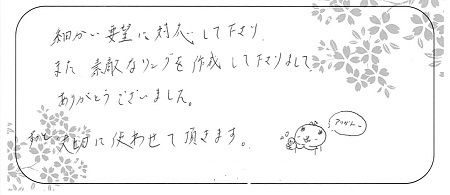 細かい要望に対応して下さり、
また 素敵なリングを作成して下さりまして
ありがとうございました。
大切に使わせて頂きます。
アリガトー